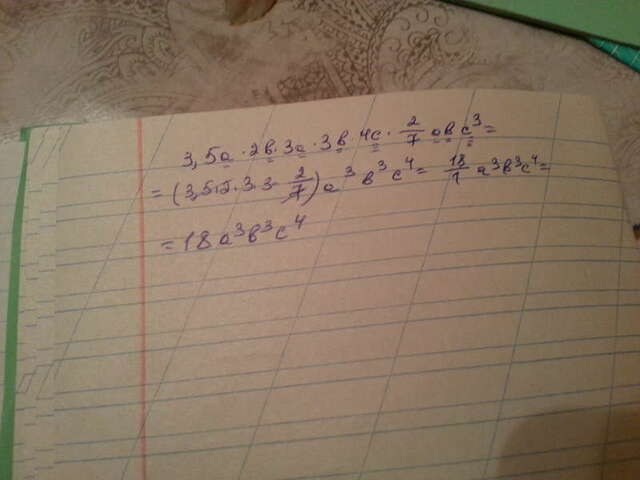 3,5a · 2в · 3a · 3в · 4c · 2/7 a в c³ =
= (3,5·2·3·3· 2/7) a³ в³ c⁴ = 18/1 a³в³c⁴ =
= 18 a³в³c⁴